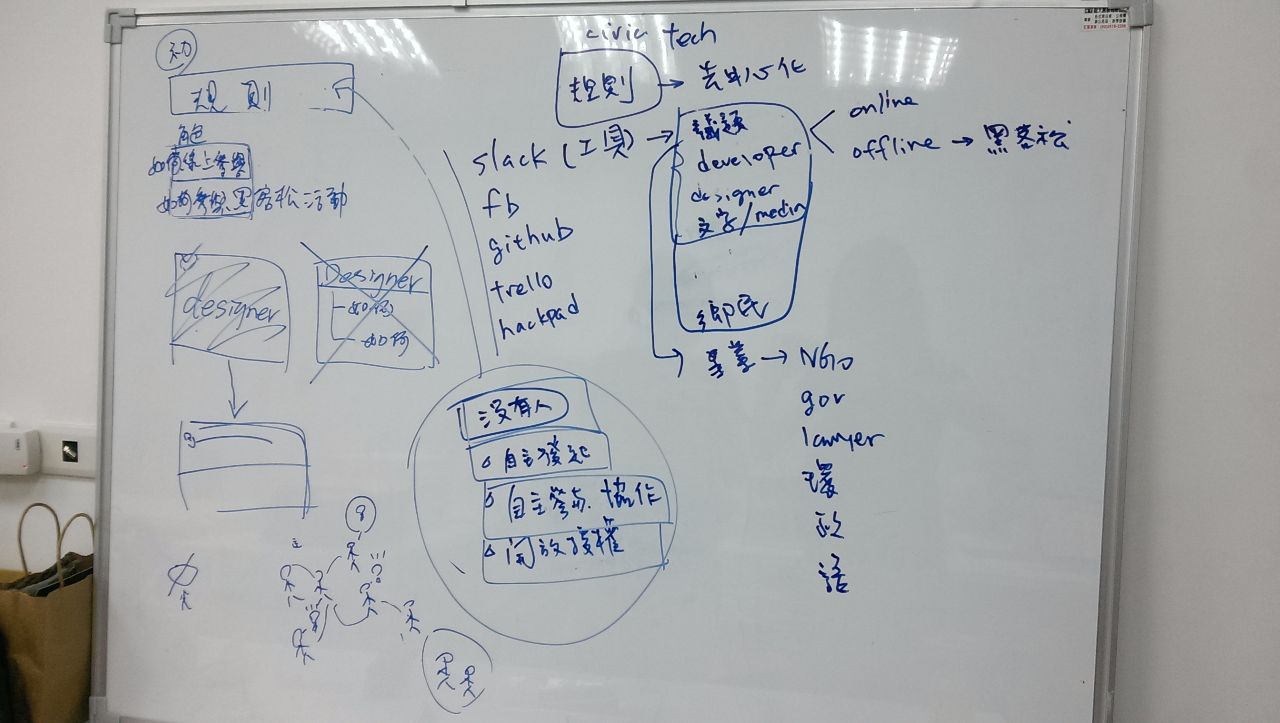 規則
角色
如何線上參與
如何參與黑客松活動
designer
Designer
如何
如何
civic tech
規則 → 去中心化
slack (工具) →
fb
github
trello
hackpad
議題
developer
designer
文字/media
鄉民
online
offline → 黑客松
→ NGO
gov
lawyer
環
政
語
沒有人
自主發起
自主參與.協作
開放授權